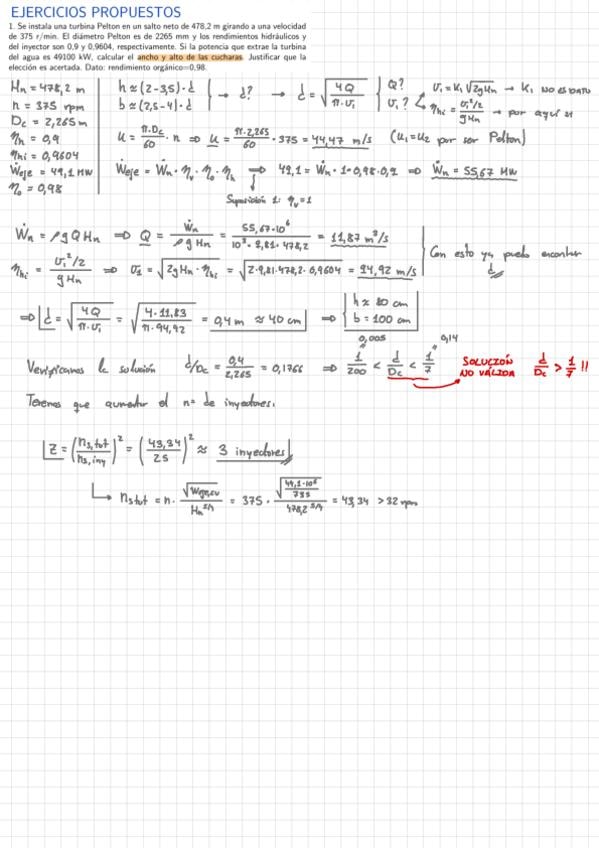 EJERCICIOS PROPUESTOS
1. Se instala una turbina Pelton en un salto neto de 478,2 m girando a una velocidad
de 375 r/min. El diámetro Pelton es de 2265 mm y los rendimientos hidráulicos y
del inyector son 0,9 y 0,9604, respectivamente. Si la potencia que extrae la turbina
del agua es 49100 kW, calcular el ancho y alto de las cucharas. Justificar que la
elección es acertada. Dato: rendimiento orgánico=0,98.
Hn = 478,2 m
n = 375 rpm
Dc = 2,265 m
ηh = 0,9
ηhi = 0,9604
Ẇeje = 49,1 MW
η₀ = 0,98
h ≈ (2-3,5)·d
b ≈ (2,5-4)·d
→ d? → d = √(4Q/π·v₁)
Q?
v₁?
v₁ = K₁√2gHn → K₁ NO ES DATO
ηhi = (v₁²/2)/gHn → por aquí sí
u = π·Dc/60 · n ⇒ u = π·2,265/60 · 375 = 44,47 m/s (u₁=u₂ por ser Pelton)
Ẇeje = Ẇn·ηv·η₀·ηh ⇒ 49,1 = Ẇn·1·0,98·0,9 ⇒ Ẇn = 55,67 MW
Suposición 1: ηv=1
Ẇn = ρgQHn ⇒ Q = Ẇn/ρgHn = 55,67·10⁶/10³·9,81·478,2 = 11,87 m³/s
ηhi = (v₁²/2)/gHn ⇒ v₁ = √2gHn·ηhi = √2·9,81·478,2·0,9604 = 94,92 m/s
Con esto ya puedo encontrar
d
⇒ d = √(4Q/π·v₁) = √(4·11,83/π·94,92) = 0,4 m ≈ 40 cm ⇒
h ≈ 80 cm
b = 100 cm
0,005 0,14
Verificamos la solución d/Dc = 0,4/2,265 = 0,1766 ⇒ 1/200 < d/Dc < 1/7
SOLUCIÓN
NO VÁLIDA
d/Dc > 1/7 !!
Tenemos que aumentar el nº de inyectores.
Z = (ns,tot/ns,iny)² = (43,34/25)² ≈ 3 inyectores
ns tot = n · √Weje,cv/Hn^5/4 = 375 · √(49,1·10⁶/735)/478,2^5/4 = 43,34 > 32 rpm